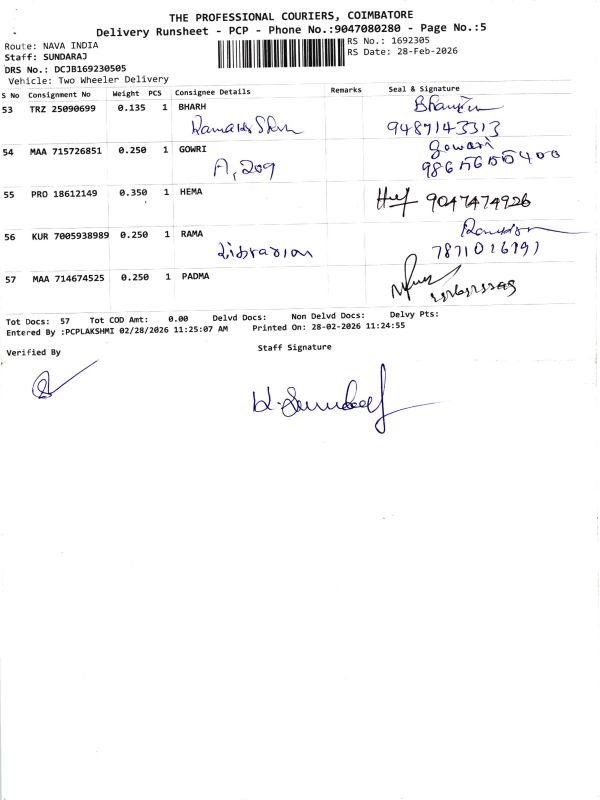 THE PROFESSIONAL COURIERS, COIMBATORE
Delivery Runsheet - PCP - Phone No.:9047080280 - Page No.:5
Route: NAVA INDIA
RS No.: 1692305
Staff: SUNDARAJ
RS Date: 28-Feb-2026
DRS No.: DCJB169230505
Vehicle: Two Wheeler Delivery
S No Consignment No Weight PCS Consignee Details Remarks Seal & Signature
53 TRZ 25090699 0.135 1 BHARH
9487143313
54 MAA 715726851 0.250 1 GOWRI Gowari
A, 209
55 PRO 18612149 0.350 1 HEMA
9047474926
56 KUR 7005938989 0.250 1 RAMA
Librarion
57 MAA 714674525 0.250 1 PADMA
Tot Docs: 57 Tot COD Amt: 0.00 Delvd Docs: Non Delvd Docs: Delvy Pts:
Entered By :PCPLAKSHMI 02/28/2026 11:25:07 AM Printed On: 28-02-2026 11:24:55
Verified By Staff Signature